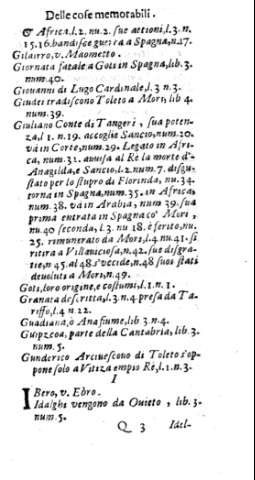 Delle cose memorabili.
& Africa, l. 2. nu. 2. sue attioni, l. 3. n.
15. 16. bandisce guerra a Spagna, n. 17.
Gilairro, v. Maometto.
Giornata fatale a Goti in Spagna, lib. 3.
num. 40.
Giouanni di Lugo Cardinale, l. 3 n. 3.
Giudei tradiscono Toleto a Mori, lib 4.
num. 39.
Giuliano Conte di Tangeri, sua poten-
za, l. 1. n. 19. accoglie Sancio, num. 20.
va in Corte, num. 29. Legato in Afri-
ca, num. 31. auuisa al Rè la morte d'
Anagilda, e Sancio, l. 2. num. 7. disgu-
stato per lo stupro di Florinda, nu. 34.
torna in Spagna, num. 35. in Africa,
num. 38. va in Arabia, num 39. sua
prima entrata in Spagna co' Mori,
nu. 40 seconda, l. 3. nu 18. è ferito, nu.
25. rimunerato da Mori, l. 4 nu. 41. si
ritira a Villauiciosa, n. 42. sue disgra-
tie, n 45. al 48 s'vccide, n. 48 suoi stati
deuoluti a Mori, n. 49.
Goti, loro origine, e costumi, l. 1. n. 1.
Granata descritta, l. 3. n. 4 presa da Ta-
riffo, l. 4 n. 22.
Guadiana, ò Ana fiume, lib 3. n. 4.
Guipzcoa, parte della Cantabria, lib. 3.
num. 5.
Gunderico Arciuescouo di Toleto s'op-
pone solo a Vitiza empio Rè, l. 1. n. 3.
I
IBero, v. Ebro.
Idalghi vengono da Ouieto, lib. 3.
num. 5.
Q 3 Idel-